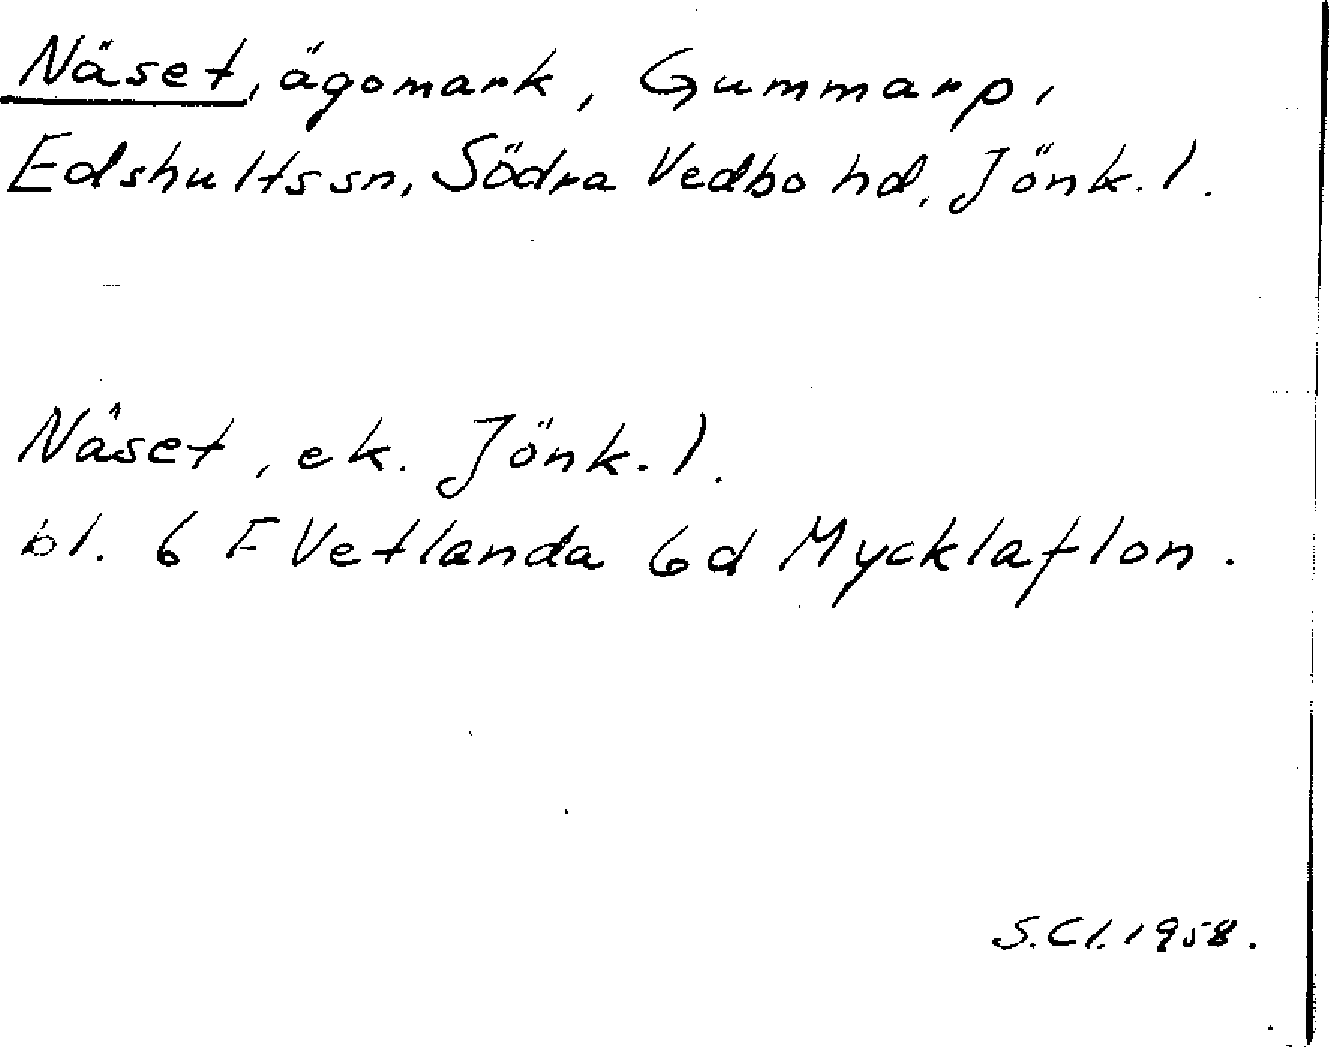 Näset, ägomark, Gummarp,
Edshults sn, Södra Vedbo hd, Jönk. l.
Näset, ek. Jönk. l.
bl. 6 F Vetlanda 6d Mycklaflon.
S.Cl. 1958.